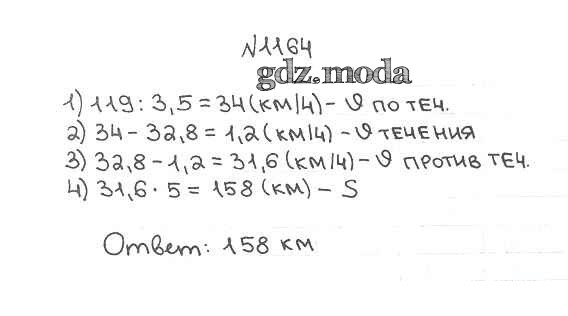 №1164
gdz.moda
1) 119 : 3,5 = 34 (км/ч) - υ по теч.
2) 34 - 32,8 = 1,2 (км/ч) - υ течения
3) 32,8 - 1,2 = 31,6 (км/ч) - υ против теч.
4) 31,6 · 5 = 158 (км) - S
Ответ: 158 км